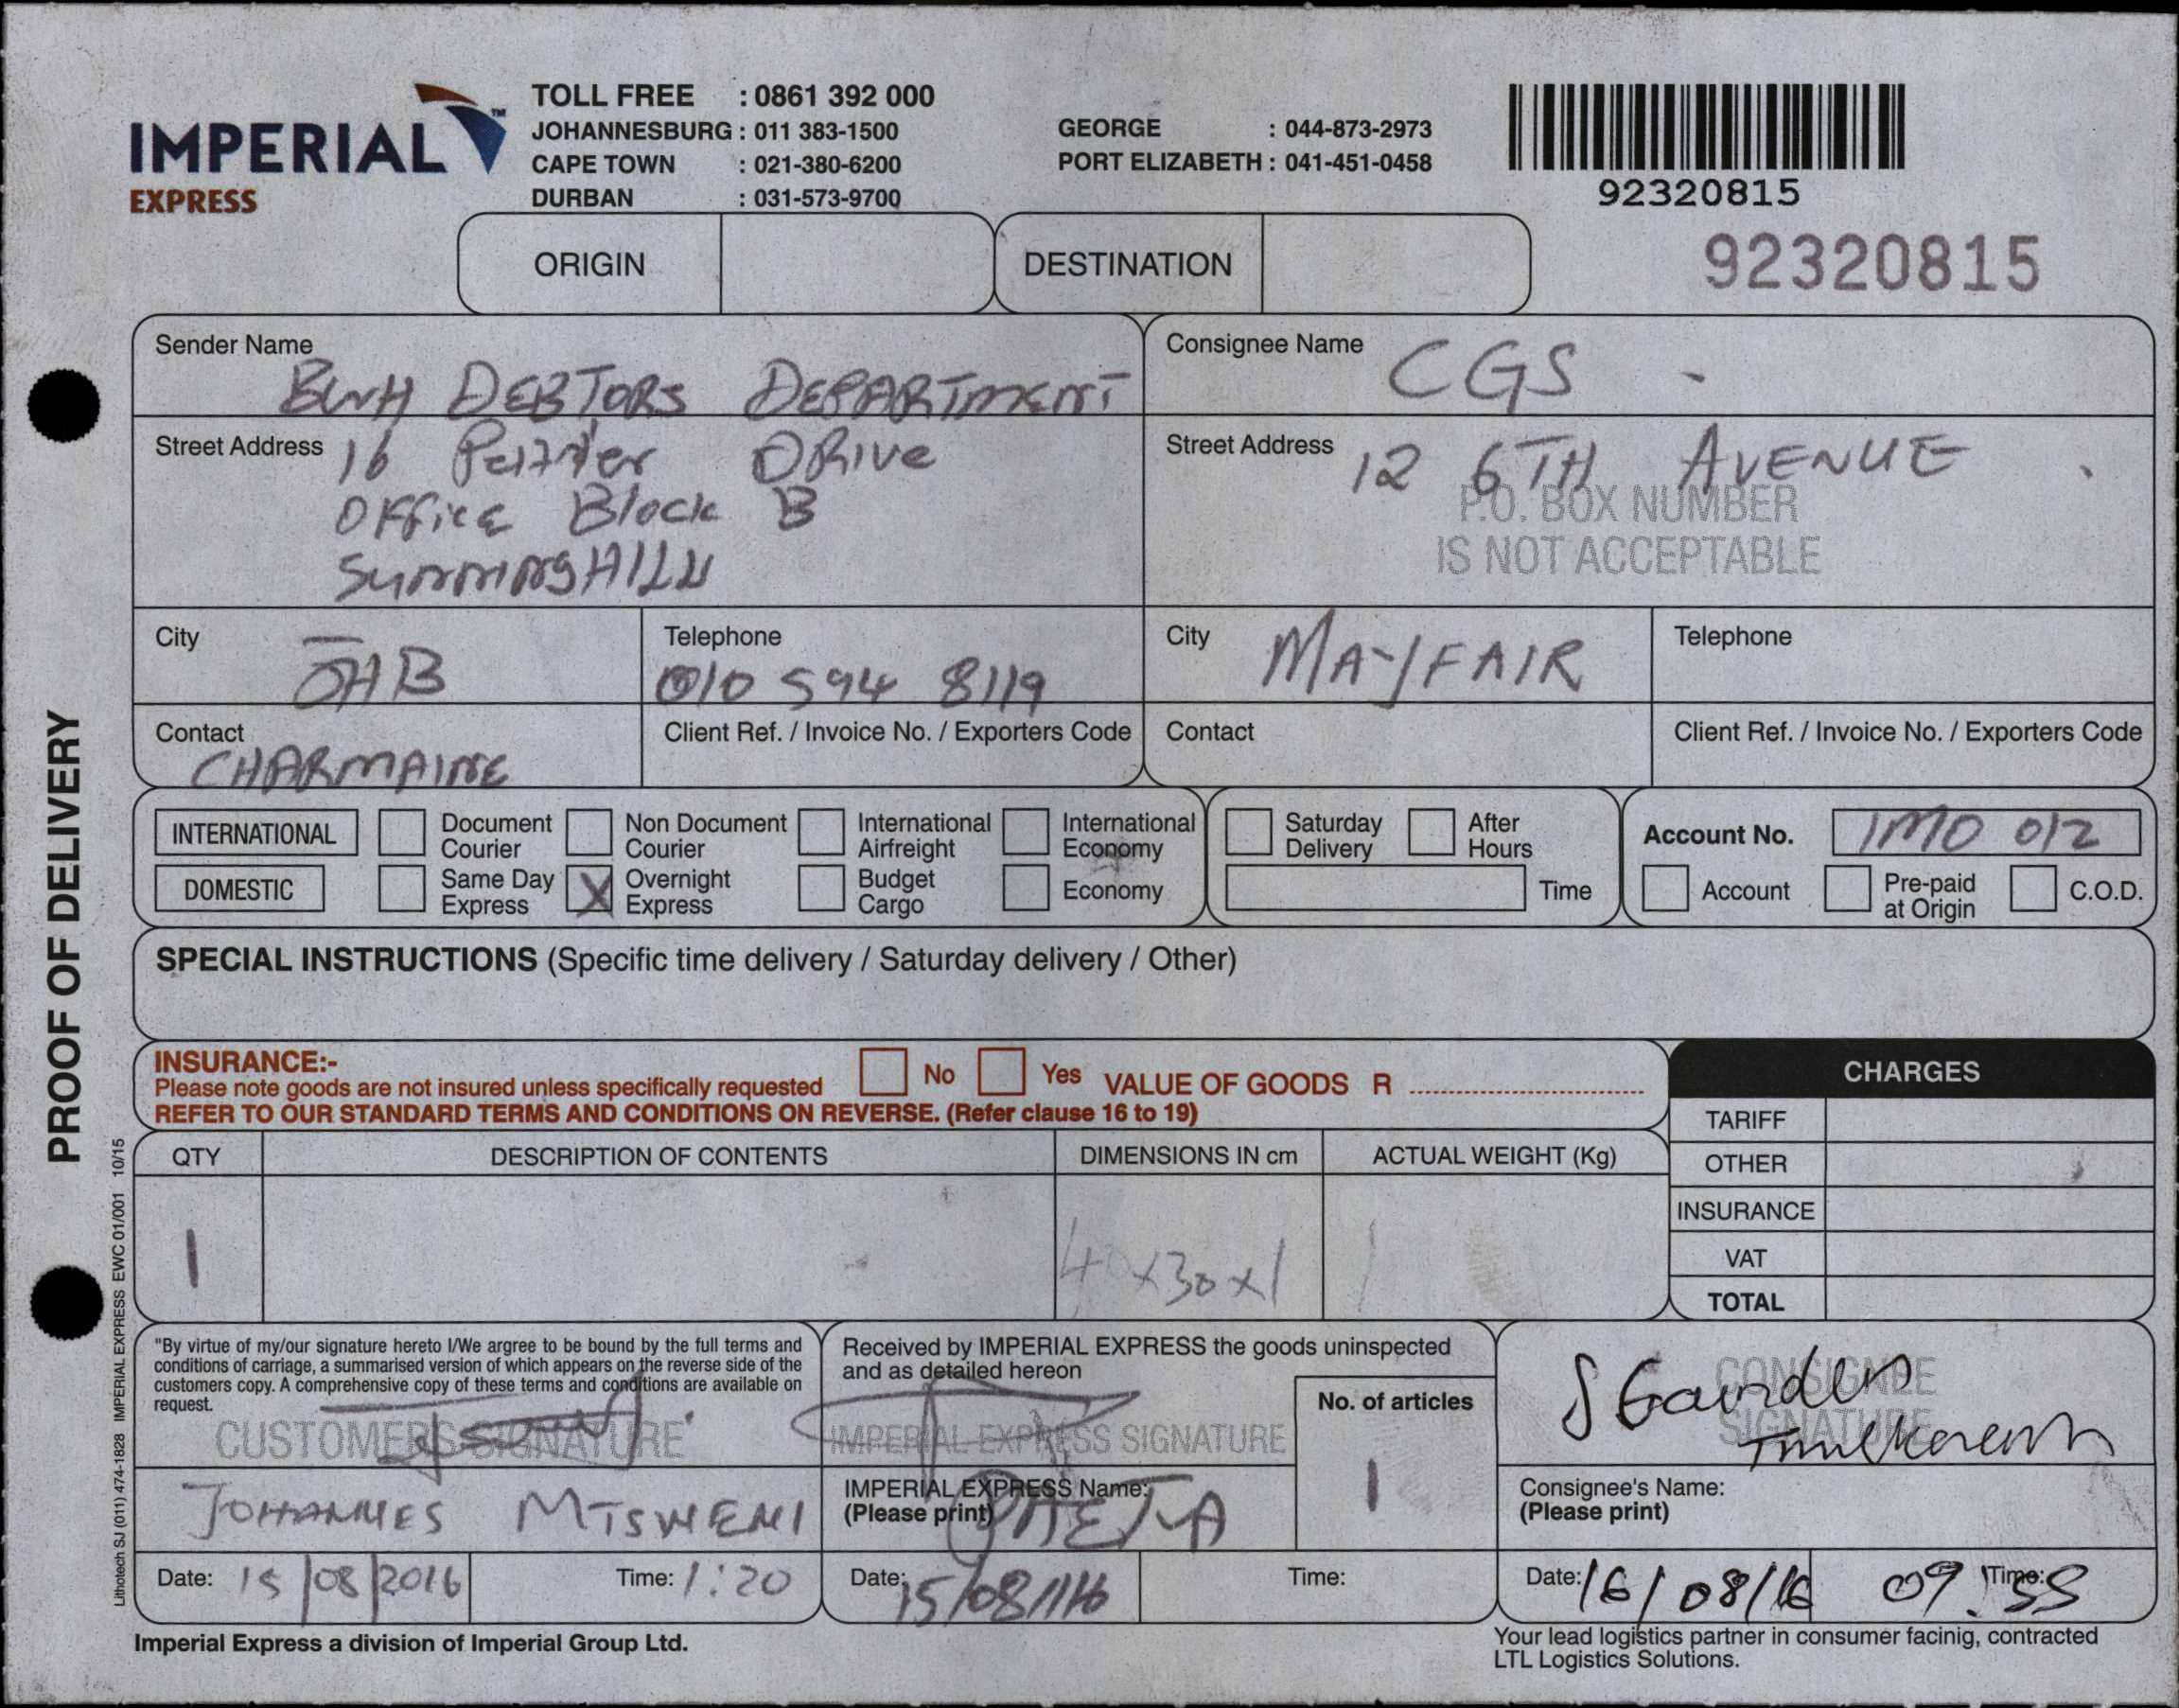 IMPERIAL™
EXPRESS
TOLL FREE : 0861 392 000
JOHANNESBURG : 011 383-1500
CAPE TOWN : 021-380-6200
DURBAN : 031-573-9700
GEORGE : 044-873-2973
PORT ELIZABETH : 041-451-0458
92320815
92320815
ORIGIN
DESTINATION
Sender Name
BWH DEBTORS DEPARTMENT
Consignee Name
CGS
Street Address
16 Drive
Office Block B
SUNNINGHILL
Street Address
12 6TH AVENUE
P.O. BOX NUMBER
IS NOT ACCEPTABLE
City
JHB
Telephone
010 594 8119
City
MAYFAIR
Telephone
Contact
CHARMAINE
Client Ref. / Invoice No. / Exporters Code
Contact
Client Ref. / Invoice No. / Exporters Code
INTERNATIONAL
Document Courier
Non Document Courier
International Airfreight
International Economy
Saturday Delivery
After Hours
Account No. IMO 012
DOMESTIC
Same Day Express
X Overnight Express
Budget Cargo
Economy
Time
Account
Pre-paid at Origin
C.O.D.
SPECIAL INSTRUCTIONS (Specific time delivery / Saturday delivery / Other)
INSURANCE:-
Please note goods are not insured unless specifically requested
No
Yes
VALUE OF GOODS R
REFER TO OUR STANDARD TERMS AND CONDITIONS ON REVERSE. (Refer clause 16 to 19)
CHARGES
TARIFF
OTHER
INSURANCE
VAT
TOTAL
QTY
DESCRIPTION OF CONTENTS
DIMENSIONS IN cm
ACTUAL WEIGHT (Kg)
1
40x30x1
1
"By virtue of my/our signature hereto I/We argree to be bound by the full terms and
conditions of carriage, a summarised version of which appears on the reverse side of the
customers copy. A comprehensive copy of these terms and conditions are available on
request.
CUSTOMERS SIGNATURE
JOHANNES MTSWENI
Date: 15/08/2016
Time: 1:20
Received by IMPERIAL EXPRESS the goods uninspected
and as detailed hereon
IMPERIAL EXPRESS SIGNATURE
No. of articles
1
IMPERIAL EXPRESS Name:
(Please print)
Date: 15/08/16
Time:
CONSIGNEE
SIGNATURE
Consignee's Name:
(Please print)
Date: 16/08/16
Time: 09:55
Imperial Express a division of Imperial Group Ltd.
Your lead logistics partner in consumer facinig, contracted
LTL Logistics Solutions.
PROOF OF DELIVERY
Lithotech SJ (011) 474-1828 IMPERIAL EXPRESS EWC 01/001 10/15